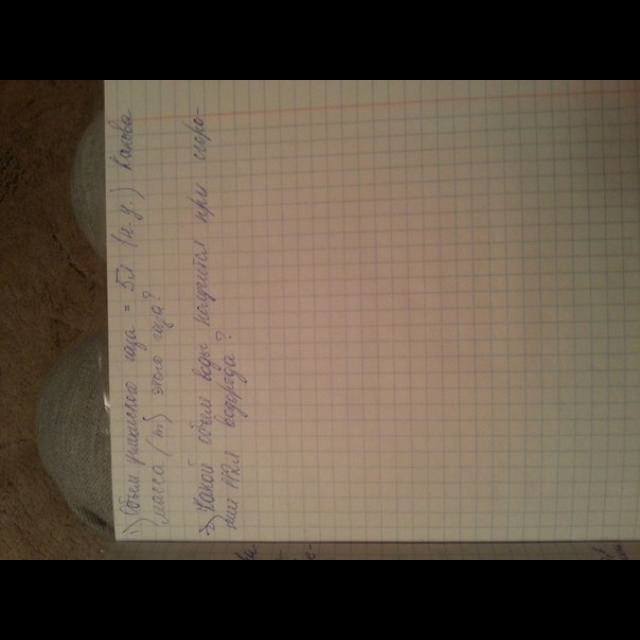 1) Объём углекислого газа = 5л (н.у) Какова
масса (m) этого газа?
2) Какой объём воды получится при сгора-
нии водорода?